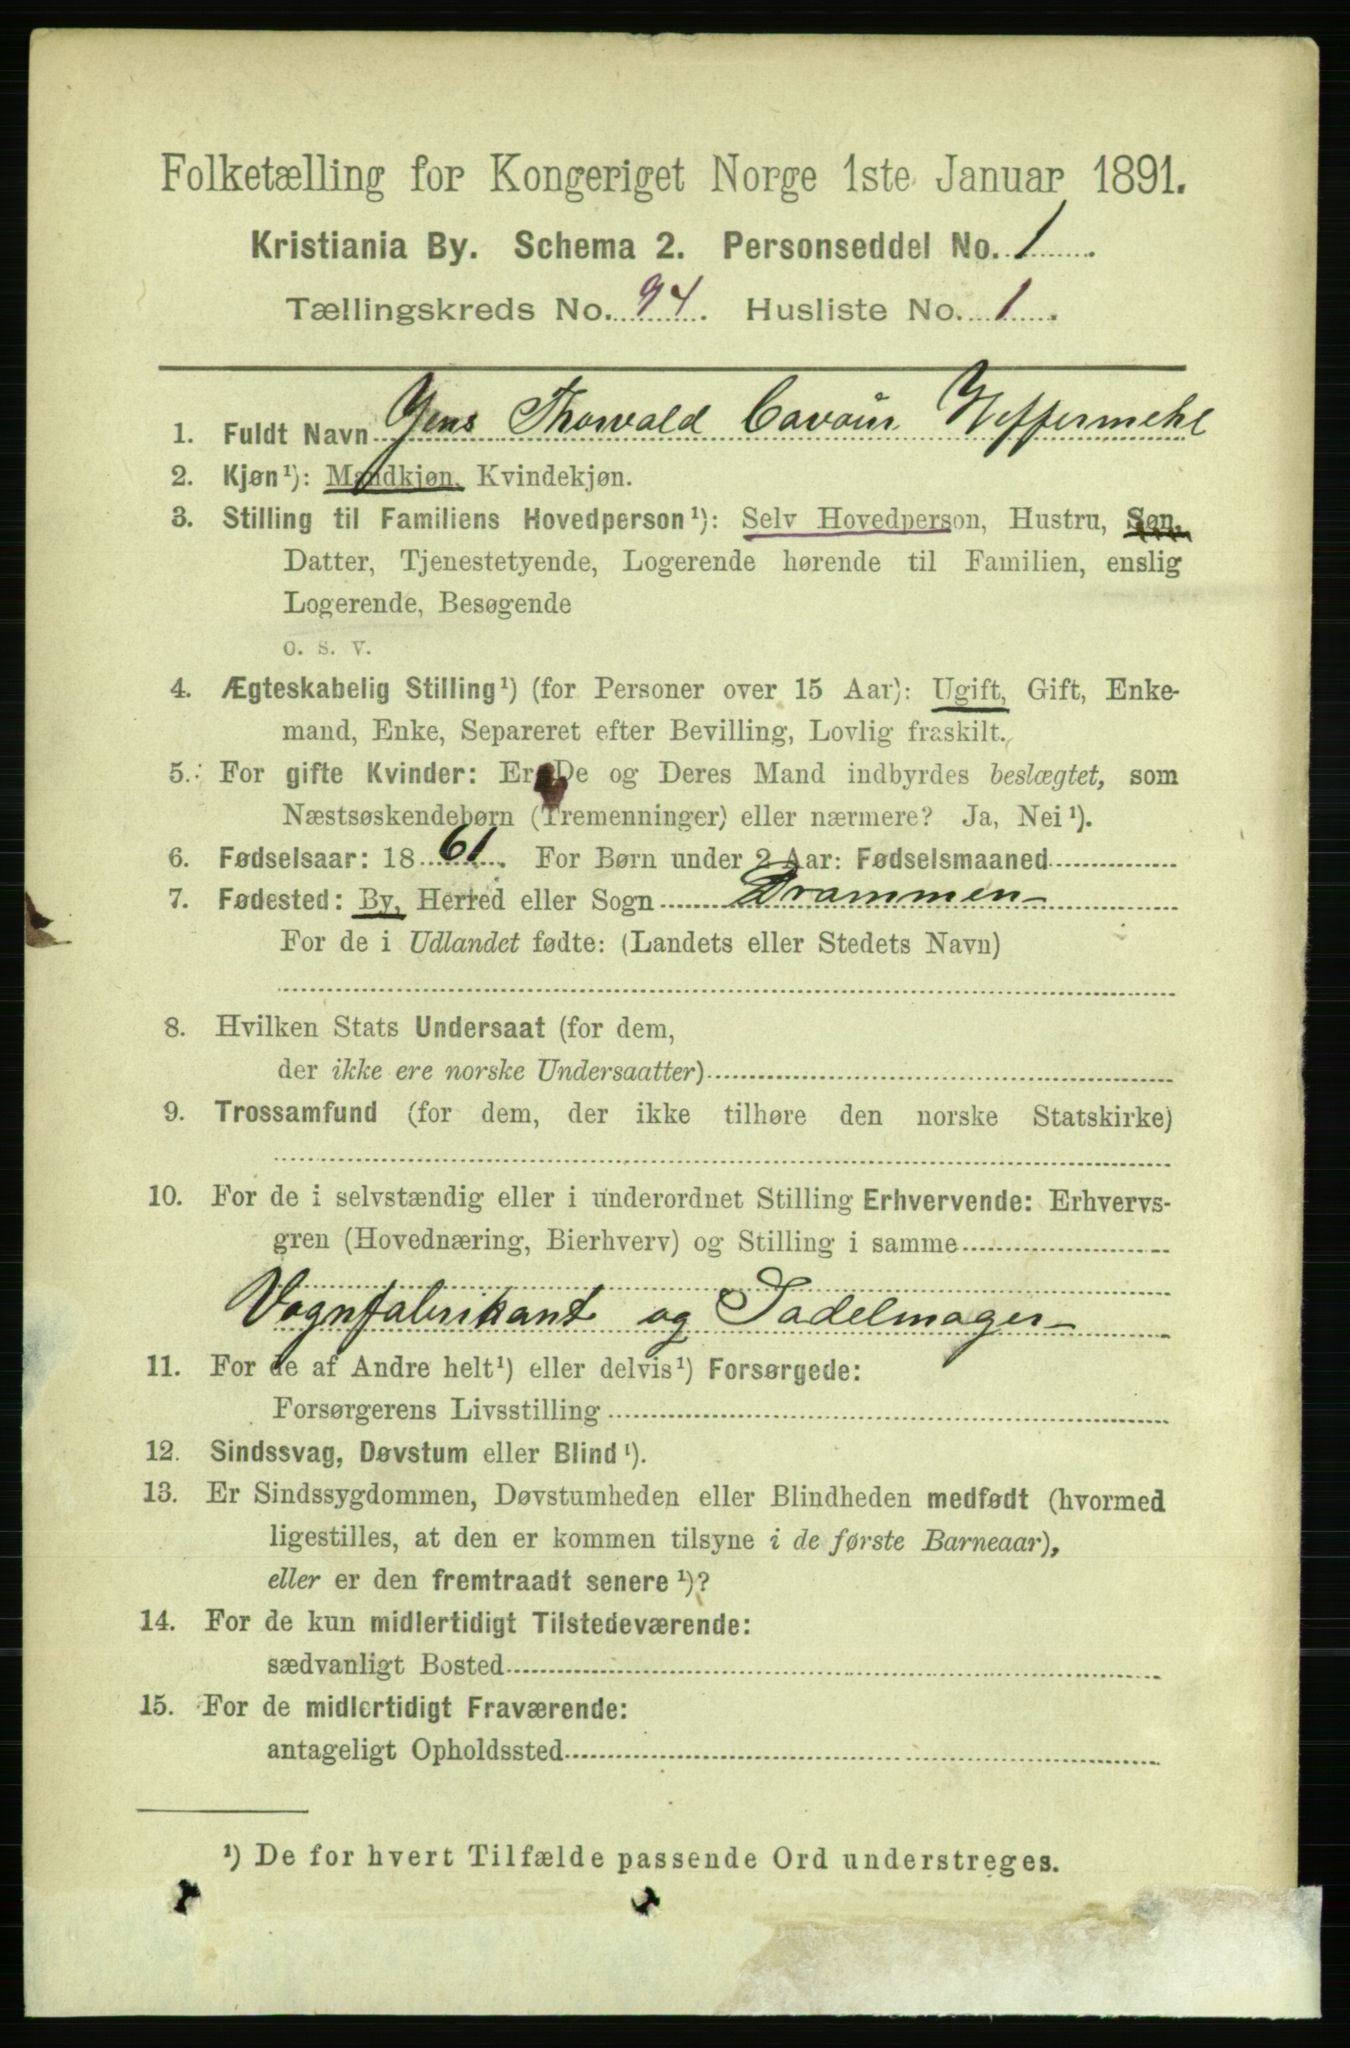 Folketælling for Kongeriget Norge 1ste Januar 1891.
Kristiania By. Schema 2. Personseddel No. 1.
Tællingskreds No. 94. Husliste No. 1.
1. Fuldt Navn Jens Thorvald Cavour Heffermehl
2. Kjøn¹): Mandkjøn, Kvindekjøn.
3. Stilling til Familiens Hovedperson¹): Selv Hovedperson, Hustru, Søn,
Datter, Tjenestetyende, Logerende hørende til Familien, enslig
Logerende, Besøgende
o. s. v.
4. Ægteskabelig Stilling¹) (for Personer over 15 Aar): Ugift, Gift, Enke-
mand, Enke, Separeret efter Bevilling, Lovlig fraskilt.
5. For gifte Kvinder: Er De og Deres Mand indbyrdes beslægtet, som
Næstsøskendebørn (Tremenninger) eller nærmere? Ja, Nei¹).
6. Fødselsaar: 1861. For Børn under 2 Aar: Fødselsmaaned
7. Fødested: By, Herred eller Sogn Drammen
For de i Udlandet fødte: (Landets eller Stedets Navn)
8. Hvilken Stats Undersaat (for dem,
der ikke ere norske Undersaatter)
9. Trossamfund (for dem, der ikke tilhøre den norske Statskirke)
10. For de i selvstændig eller i underordnet Stilling Erhvervende: Erhvervs-
gren (Hovednæring, Bierhverv) og Stilling i samme
Vognfabrikant og Sadelmager
11. For de af Andre helt¹) eller delvis¹) Forsørgede:
Forsørgerens Livsstilling
12. Sindssvag, Døvstum eller Blind¹).
13. Er Sindssygdommen, Døvstumheden eller Blindheden medfødt (hvormed
ligestilles, at den er kommen tilsyne i de første Barneaar),
eller er den fremtraadt senere¹)?
14. For de kun midlertidigt Tilstedeværende:
sædvanligt Bosted
15. For de midlertidigt Fraværende:
antageligt Opholdssted
¹) De for hvert Tilfælde passende Ord understreges.